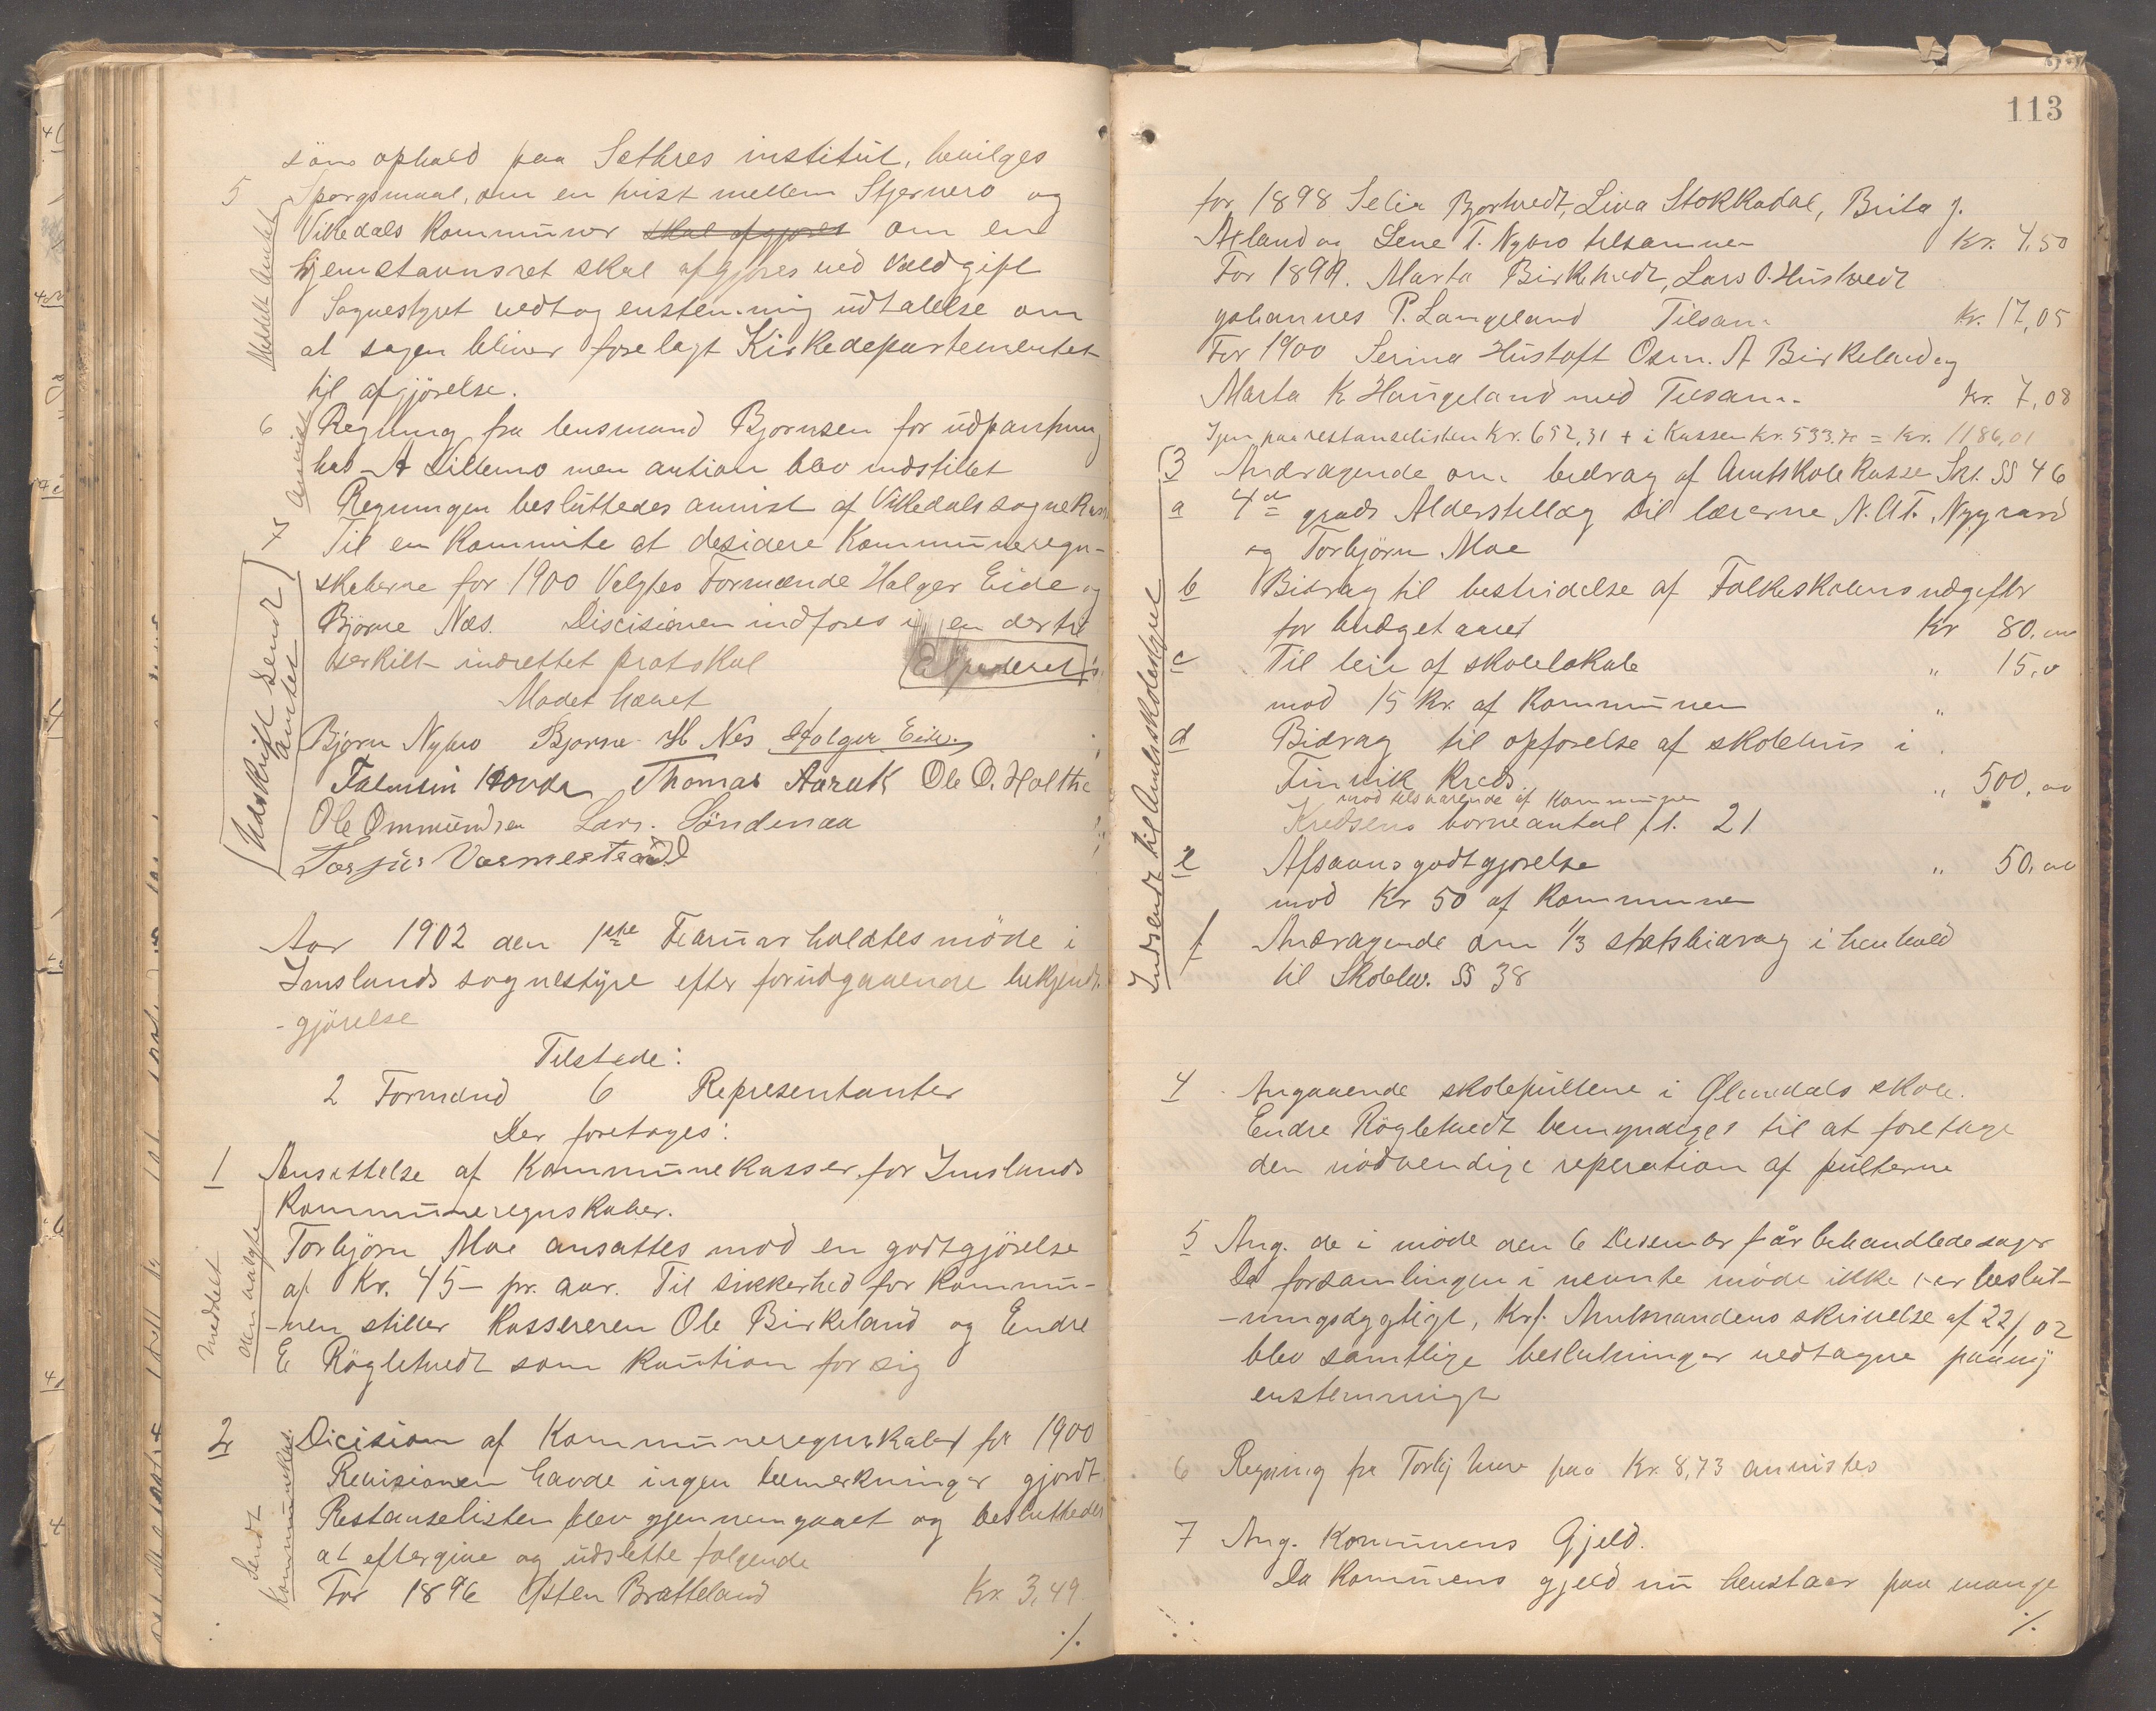 søns ophold paa Sethres institut, bevilges
5 Spørgsmaal, om en tvist mellem Stjernerø og
Vikedals Kommuner skal afgjøres om en
hjemstavnsret skal afgjøres ved Voldgift
Sognestyret vedtog enstemmig udtalelse om
at sagen bliver forelagt Kirkedepartementet
til afgjørelse.
Meddelt Amtet
6 Regning fra lensmand Bjørnsen for udpantning
hos A Lillemo men auktion blev indstillet
Regningen besluttedes anvist af Vikedals sognekasse
Anvist
7 Til en Kommite at desidere Kommuneregn-
skaberne for 1900 Valgtes Formænde Holger Eide og
Bjørne Næs. Discisionen indføres i en dertil
serkilt indrettet protokol
Mødet hævet
Udskrift sendt
Amtet
Bjørn Nybro Bjørne H Nes Holger Eide.
Thomas Aarak Ole O. Holthe
Ole Ommundsen Lars. Söndenaa
Torjus Vormestrand
Aar 1902 den 1ste Februar holdtes møde i
Imslands sognestyre efter forudgaaende bekjendt-
-gjörelse
Tilstede:
2 Formænd 6 Representanter
Der foretoges:
1 Ansettelse af Kommunekasser for Imslands
Kommuneregnskaber.
Torbjörn Moe ansattes mod en godtgjörelse
af Kr. 45– pr. aar. Til sikkerhed for Kommu-
-nen stiller Kassereren Ole Birkeland og Endre
E Rögletvedt som Kaution for sig
meddelt
den valgte
2 Dicision af Kommuneregnskabet for 1900
Revisionen havde ingen bemerkninger gjordt.
Restanselisten blev gjennemgaaet og besluttedes
at eftergive og udslette følgende
For 1896 Østen Bratteland Kr. 3,49
Sendt
Kommunekas.
%
113
for 1898 Selia Bjortvedt, Liva Stokkadal, Brita J.
Axland og Lene T. Nybro tilsammen Kr. 4,50
For 1899. Marta Birketvedt, Lars O. Hustvedt
Johannes P. Langeland Tilsam. Kr. 17,05
For 1900 Serina Hustoft Osm. A Birkeland og
Marta K Haugeland med Tilsam. Kr. 7,08
Igen paa restanselisten Kr. 652,31 + i Kassen Kr. 533,70 = Kr. 1186,01
3 Andragende om bidrag af Amtskolekasse Skl. §§ 46
a 4de grads Alderstillæg til lærerne N. At. Nygaard
og Torbjörn Moe
b Bidrag til bestridelse af Folkeskolens udgifter
for budgetaaret Kr 80,00
c Til leie af skolelokale " 15,0
mod 15 Kr. af Kommunen "
d Bidrag til opførelse af skolehus i
Finvik Kreds. " 500,00
mod tilsvarende af Kommunen
Kredsens børneantal f.t. 21
e Afsavnsgodtgjørelse " 50,00
mod Kr 50 af Kommunen
f Andragende om 1/3 statsbidrag i henhold
til Skolelov. §§ 38
Indsendt til Amtsskolestyret
4 Angaaende skolepultene i Ølmedals skole.
Endre Rögletvedt bemyndiges til at foretage
den nödvendige reperation af pulterne
5 Ang. de i møde den 6 Desember f år behandlede sager
Da forsamlingen i nevnte møde ikke var beslut-
-ningsdygtigt, Krf. Amtmandens skrivelse af 22/1 02
blev samtlige beslutninger vedtagne paany
enstemmigt
6 Regning fra Torbj Moe paa Kr. 8,73 anvistes
7 Ang. Kommunens Gjeld.
Da Kommunens gjeld nu henstaar paa mange
%